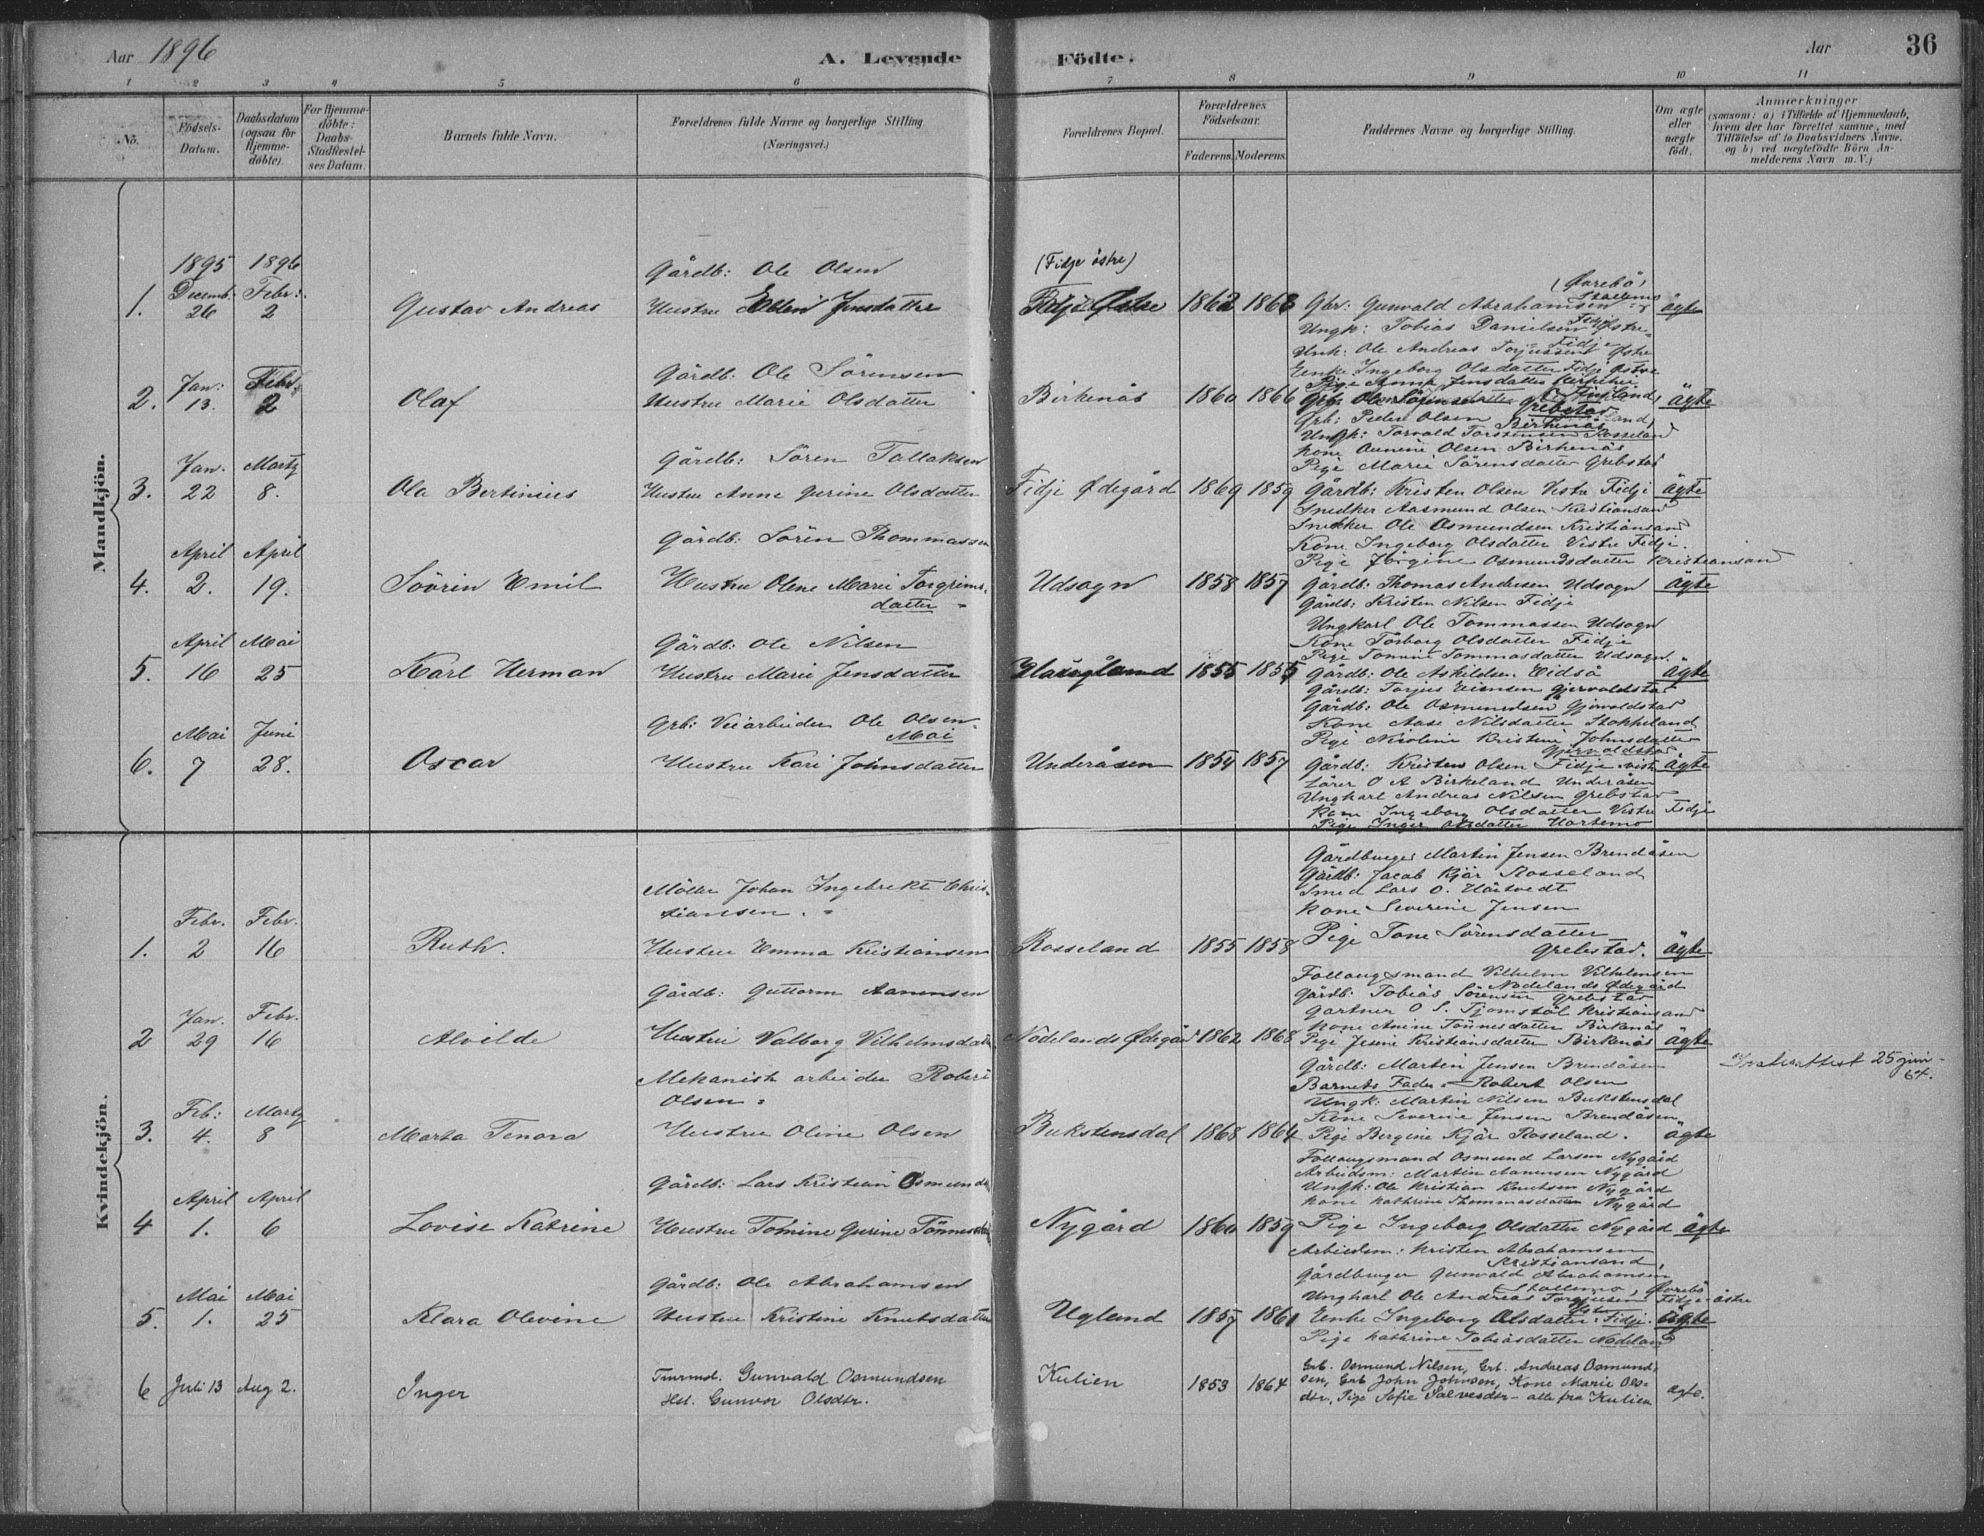 Aar 1896
A. Levende Födte.
Aar
36
1 2 3 4 5 6 7 8 9 10 11
No.
Födsels-
Datum.
Daabsdatum
(ogsaa for
Hjemme-
döbte).
For Hjemme-
döbte:
Daabs-
Stadfæstel-
ses Datum.
Barnets fulde Navn.
Forældrenes fulde Navne og borgerlige Stilling
(Næringsvei.)
Forældrenes Bopæl.
Forældrenes
Födselsaar.
Faderens. Moderens.
Faddernes Navne og borgerlige Stilling.
Om ægte
eller
uægte
födt.
Anmærkninger
(saasom: a) i Tilfælde af Hjemmedaab,
hvem der har forrettet samme, med
Tilföielse af to Daabsvidners Navne.
og b) ved uægtefödte Börn An-
melderens Navn m. V.)
Mandkjön.
1895 1896
Gårdb: Ole Olsen
(Fidje östre)
1. Decemb: 26 Febr: 2
Gustav Andreas
Hustru Ellen Jensdatter
Fidje Østre 1862 1863
Gbr: Gunvald Abrahamsen
(Øvrebö)
Ungk: Tobias Danielsen Fidje Østre
Unk: Ole Andreas Torjussen Fidje Østre
Enke Ingeborg Olsdatter Fidje Østre
Pige Anna Jensdatter
ägte
2. Jan: 13. Febr 2
Olaf
Gårdb: Ole Sörensen
Hustru Marie Olsdatter
Birkenäs 1860 1866
Grb: Peder Olsen Birkenäs
Ungk: Torvald Torstensen Rosseland
Kone Aunine Olsen Birkenäs
Pige Marie Sörensdatter Grebstad
ägte
3. Jan. 22 Martz 8.
Ola Bertinius
Gårdb: Sören Tallaksen
Hustru Anne Gurine Olsdatter
Fidje Ødegård 1869 1859
Gårdb: Kristen Olsen Vestre Fidje
Snedker Aasmund Olsen Kristiansand
Snedker Ole Osmundsen Kristiansand
Kone Ingeborg Olsdatter Vestre Fidje.
Pige Jörgine Osmundsdatter Kristiansand
ägte
4. April 2. April 19.
Sövrin Emil
Gårdb: Sören Thommassen
Hustru Olene Marie Torgrims-
datter
Udsogn 1858 1857
Gårdb: Thomas Andersen Udsogn
Gårdb: Kristen Nilsen Fidje
Ungkarl Ole Tommassen Udsogn
Kone Torborg Olsdatter Fidje
Pige Tomine Tommasdatter Udsogn
ägte
5. April 16 Mai 25
Karl Herman
Gårdb: Ole Nilsen
Hustru Marie Jensdatter
1855 1855
Gårdb: Ole Askildsen Eidså
Gårdb: Torjus Gjervoldstad
Gårdb: Ole Osmundsen Gjervoldstad
Kone Aase Nilsdatter Stokkeland
Pige Nicoline Kristine Johnsdatter
Gjervoldstad
ägte
6. Mai 7 Juni 28.
Oscar
Grb: Veiarbeider Ole Olsen
Moi
Hustru Kari Johnsdatter
Underåsen 1854 1857
Gårdb: Kristen Olsen Fidje vestre
Lärer O A Birkeland Underåsen
Ungkarl Andreas Nilsen Grebstad
Kone Ingeborg Olsdatter Vestre Fidje
Pige Inger Olsdatter Hortemo
ägte
Kvindekjön.
1. Febr. 2 Febr. 16
Ruth.
Möller Johan Ingebrekt Chris-
tiansen.
Hustru Emma Kristiansen
Rosseland 1855 1858
Gårdbruger Martin Jensen Brendåsen
Gårdb: Jacob Kjär Rosseland
Smed Lars O. Hårtvedt
Kone Severine Jensen
Pige Tone Sörensdatter
Grebstad.
ägte
2 Jan. 29 Febr. 16
Alvilde
Gårdb: Guttorm Aanensen
Hustru Valborg Vilhelmsdatter
Nodelands Ødegård 1862 1868
Follaugsmand Vilhelm Vilhelmsen
Nodelands Ødegård
Gårdb: Tobias Sörensen Grebstad
Gartner O. S. Tjomstöl Kristiansand
Kone Anine Tönnesdatter Birkenäs
Pige Jenine Kristiansdatter Birkenäs
ägte
3. Feb: 4. Martz 8
Marta Tenora
Mekanisk arbeider Robert
Olsen
Hustru Oline Olsen
Bukstensdal 1868 1864
Gårdb: Martin Jensen Brendåsen
Barnets Fader Robert Olsen
Ungk: Martin Nilsen Bukstensdal
Kone Severine Jensen Brendåsen
Pige Bergine Kjär Rosseland.
ägte
25 juni
64.
4 April 1. April 6
Lovise Katrine
Gårdb: Lars Kristian Osmunds
Hustru Tomine Gurine Tönnesdatter
Nygård 1860 1859
Follaugsmand Osmund Larsen Nygård
Arbeidsm: Martin Aanensen Nygård
Ungk: Ole Kristian Knutsen Nygård
Kone Kathrine Thommasdatter Nygård
Pige Ingeborg Olsdatter Nygård
ägte
5. Mai 1. Mai 25
Klara Olevine
Gårdb: Ole Abrahamsen
Hustru Kristine Knutsdatter
Uglund 1857 1861
Arbeidsm: Kristen Abrahamsen
Kristiansand,
Gårdbruger Gunvald Abrahamsen
Øvrebö
Ungkarl Ole Andreas Torjussen Fidje östre
Enke Ingeborg Olsdatter Fidje.
Pige Kathrine Tobiasdatter Nodeland
ägte
6 Juli 13 Aug 2.
Inger
Gunvald Osmundsen
Hst. Gunvor Olsdtr.
Kulien 1853 1864
Grb. Osmund Nilsen, Grb. Andreas Osmund-
sen, Grb John Johnsen, Kone Marie Ols-
dtr, Pige Sofie Salvesdtr - alle fra Kulien
ägte.